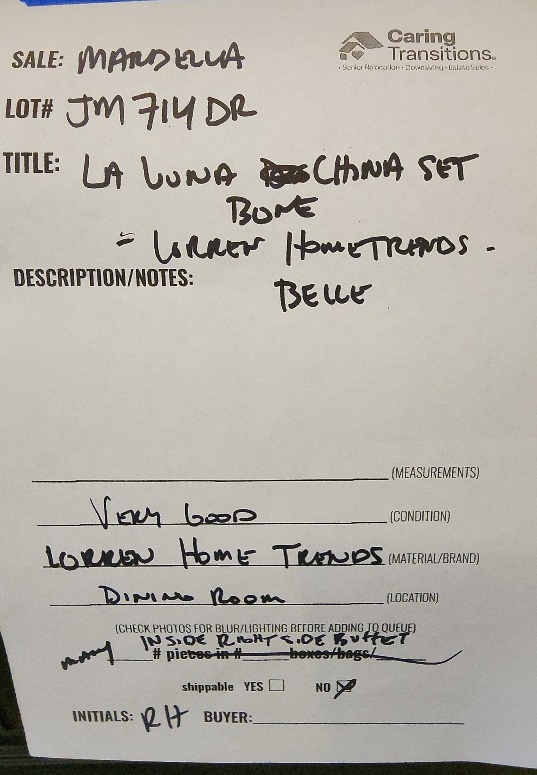 Caring
Transitions®
• Senior Relocation • Downsizing • Estate Sales •
SALE: MARDELLA
LOT# JM714DR
TITLE: LA LUNA CHINA SET
BONE
= LORREN HOMETRENDS -
BELLE
DESCRIPTION/NOTES:
(MEASUREMENTS)
VERY GOOD (CONDITION)
LORREN HOME TRENDS (MATERIAL/BRAND)
DINING ROOM (LOCATION)
(CHECK PHOTOS FOR BLUR/LIGHTING BEFORE ADDING TO QUEUE)
INSIDE RIGHT SIDE BUFFET
MANY # pieces in # boxes/bags/
shippable YES ☐ NO ☒
INITIALS: RH BUYER: